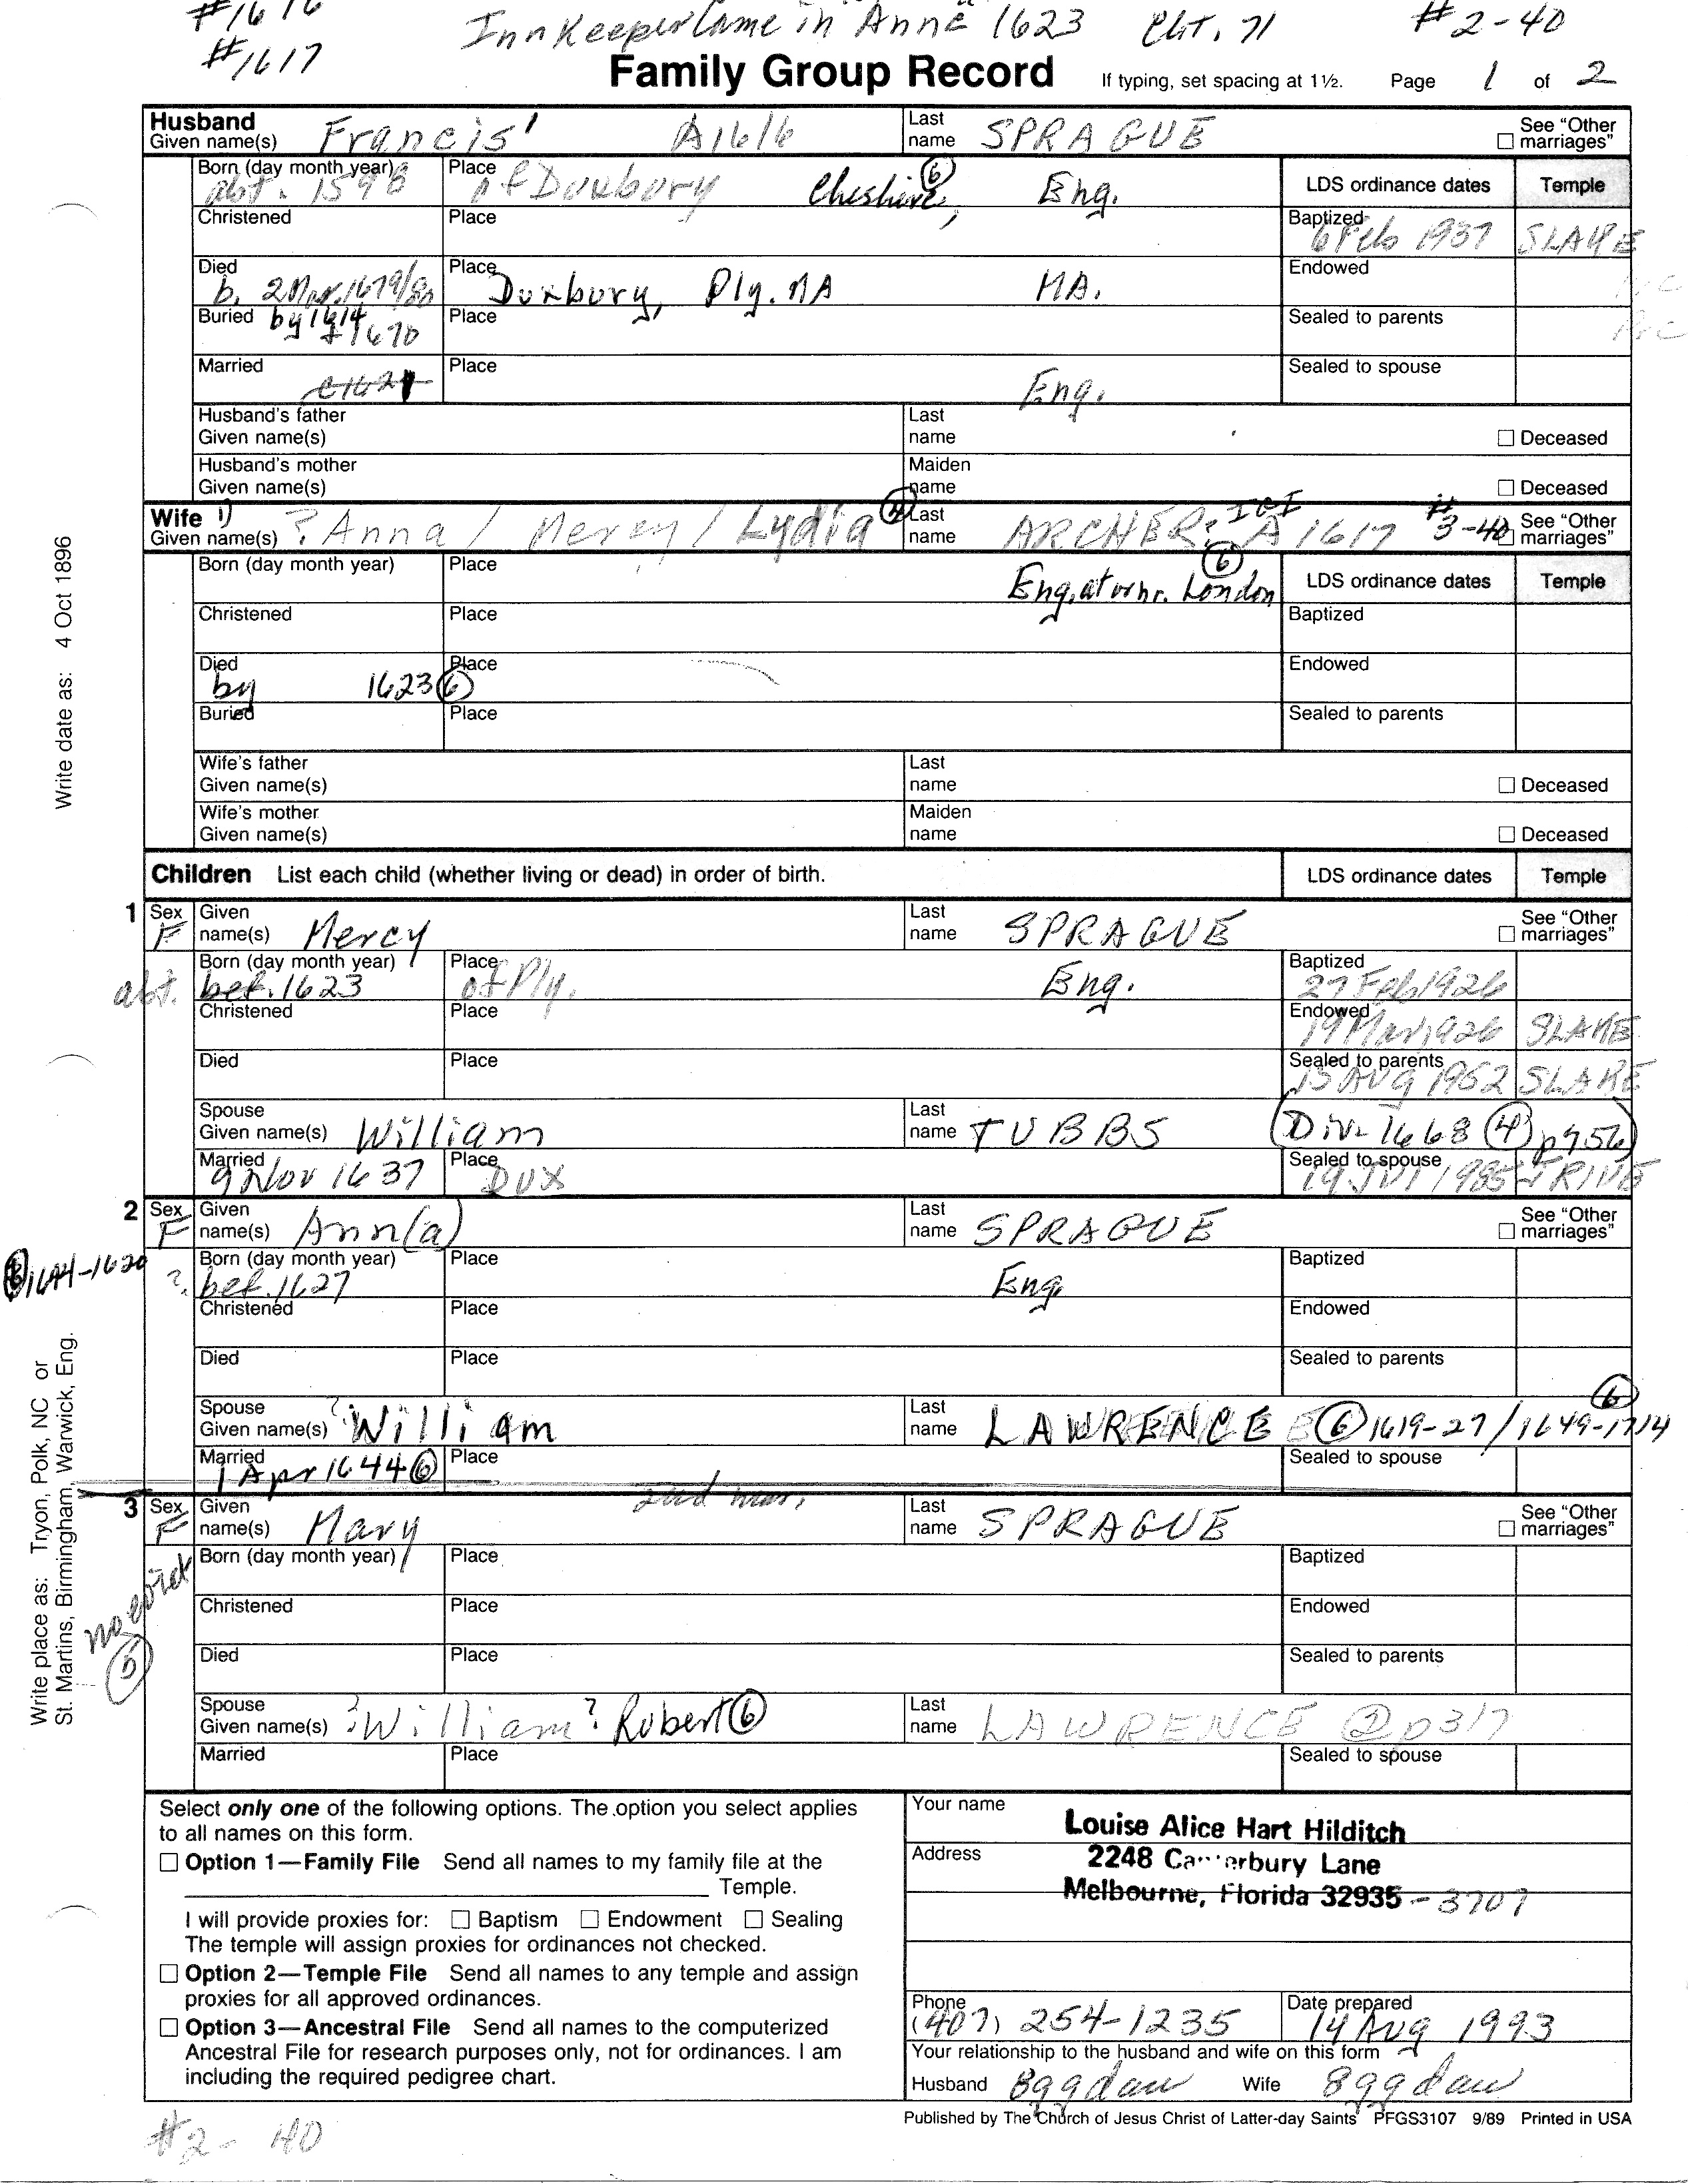 #1616
InnKeeper Came in Anne 1623 cht. 71 #2-40
#1617
Family Group Record If typing, set spacing at 1½. Page 1 of 2
Husband
Given name(s) Francis' A1616 Last name SPRAGUE See "Other marriages"
Born (day month year) abt. 1598 Place of Duxbury Cheshire, (6) Eng. LDS ordinance dates Temple
Christened Place Baptized 6 Feb 1937 SLAKE
Died b. 2 Mar. 1679/80 Place Duxbury, Ply. MA MA. Endowed
Buried by 1914 1670 Place Sealed to parents
Married c1621 Place Eng. Sealed to spouse
Husband's father
Given name(s) Last name Deceased
Husband's mother
Given name(s) Maiden name Deceased
Wife 1)
Given name(s) ? Anna / Mercy / Lydia (4) Last name ARCHER? IGI A1617 #3-40 See "Other marriages"
Born (day month year) Place Eng, at or nr. London (6) LDS ordinance dates Temple
Christened Place Baptized
Died by 1623 (6) Place Endowed
Buried Place Sealed to parents
Wife's father
Given name(s) Last name Deceased
Wife's mother
Given name(s) Maiden name Deceased
Children List each child (whether living or dead) in order of birth. LDS ordinance dates Temple
1 Sex F Given name(s) Mercy Last name SPRAGUE See "Other marriages"
abt. Born (day month year) bef. 1623 Place of Ply. Eng. Baptized 27 Feb 1926
Christened Place Endowed 19 Mar 1926 SLAKE
Died Place Sealed to parents 13 AUG 1952 SLAKE
Spouse
Given name(s) William Last name TUBBS (Div- 1668 (4) p956)
Married 9 Nov 1637 Place DUX Sealed to spouse 19 JUl 1985 JRIVE
2 Sex F Given name(s) Ann(a) Last name SPRAGUE See "Other marriages"
Born (day month year) ? bef. 1627 Place Eng Baptized
Christened Place Endowed
Died Place Sealed to parents
Spouse
Given name(s) ? William Last name LAWRENCE (6) 1619-27/1649-1714 (6)
Married 1 Apr 1644 (6) Place Sealed to spouse
2nd mar.
3 Sex F Given name(s) Mary Last name SPRAGUE See "Other marriages"
Born (day month year) Place Baptized
Christened Place Endowed
Died Place Sealed to parents
Spouse
Given name(s) ? William? Robert (6) Last name LAWRENCE (2) p317
Married Place Sealed to spouse
Write date as: 4 Oct 1896
Write place as: Tryon, Polk, NC or
St. Martins, Birmingham, Warwick, Eng.
Select only one of the following options. The option you select applies
to all names on this form.
Option 1—Family File Send all names to my family file at the
Temple.
I will provide proxies for: Baptism Endowment Sealing
The temple will assign proxies for ordinances not checked.
Option 2—Temple File Send all names to any temple and assign
proxies for all approved ordinances.
Option 3—Ancestral File Send all names to the computerized
Ancestral File for research purposes only, not for ordinances. I am
including the required pedigree chart.
Your name Louise Alice Hart Hilditch
Address 2248 Canterbury Lane
Melbourne, Florida 32935 - 3707
Phone (407) 254-1235 Date prepared 14 Aug 1993
Your relationship to the husband and wife on this form
Husband 8ggdau Wife 8ggdau
Published by The Church of Jesus Christ of Latter-day Saints PFGS3107 9/89 Printed in USA
#2- 40